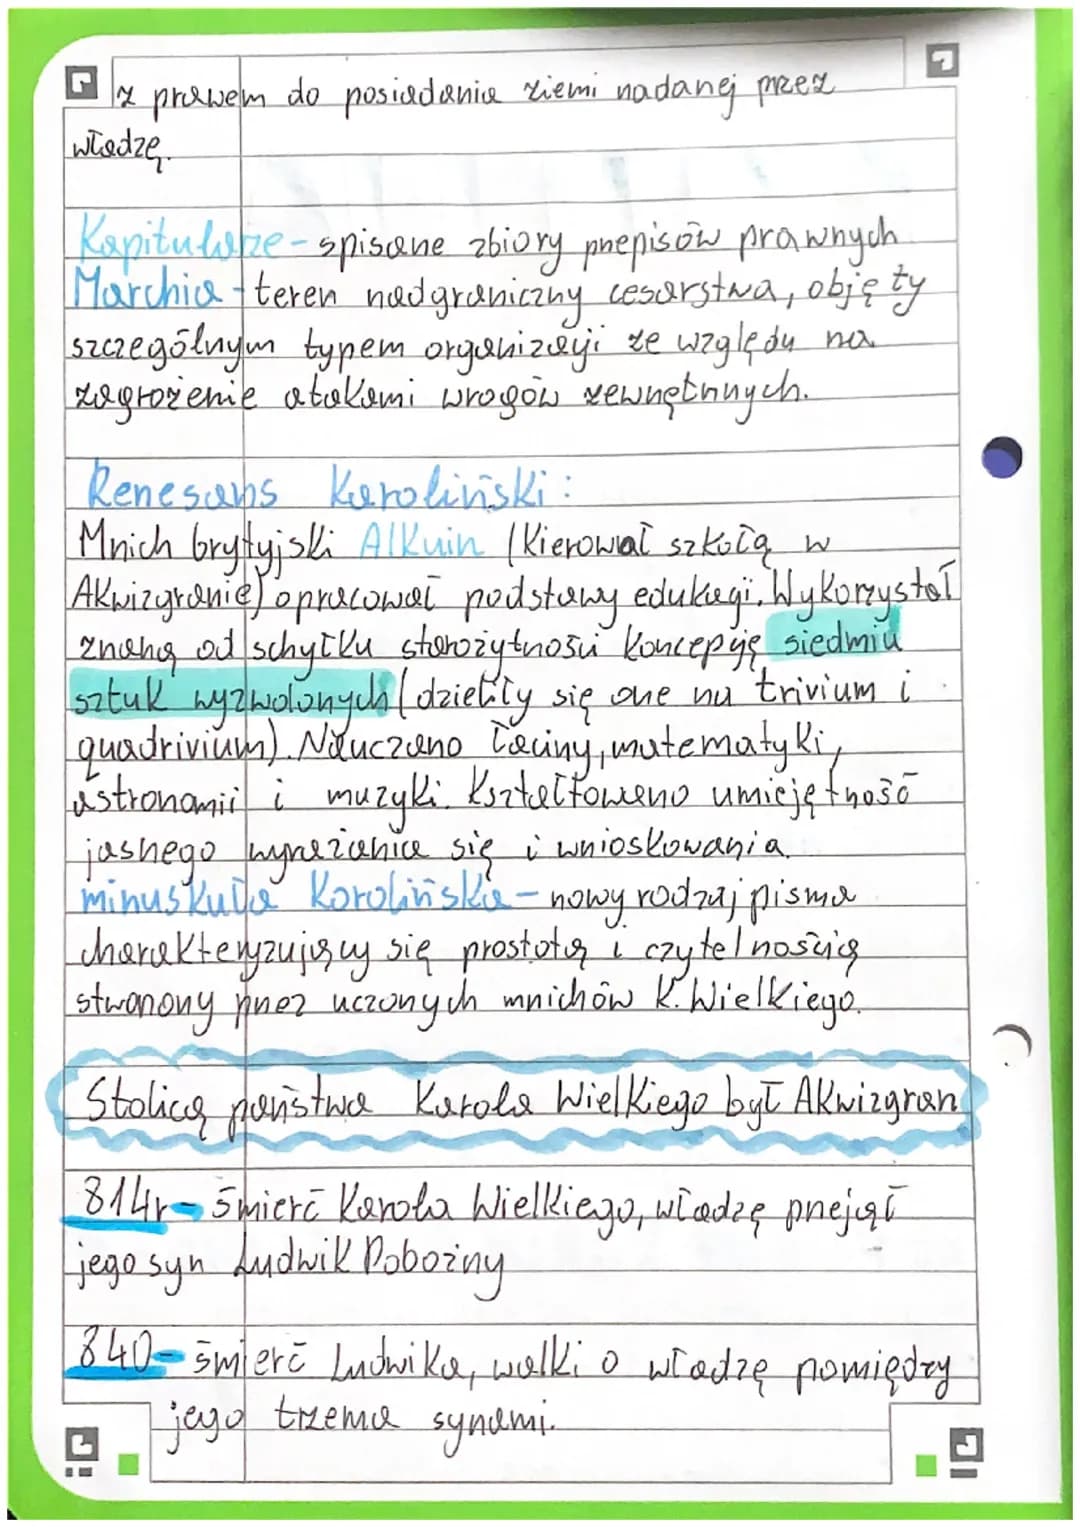 z prawem do posiadania ziemi nadanej przez
władzę.
Kapitularze - spisane zbiory przepisów prawnych
Marchia - teren nadgraniczny cesarstwa, objęty
szczególnym typem organizacji ze względu na
zagrożenie atakami wrogów zewnętrznych.
Renesans Karoliński:
Mnich brytyjski Alkuin (kierował szkołą w
Akwizgranie) opracował podstawy edukacji. Wykorzystał
znaną od schyłku starożytności koncepcję siedmiu
sztuk wyzwolonych (dzieliły się one na trivium i
quadrivium). Nauczano łaciny, matematyki,
astronomii i muzyki. Kształtowano umiejętność
jasnego wyrażania się i wnioskowania.
minuskuła Karolińska - nowy rodzaj pisma
charakteryzujący się prostotą i czytelnością
stworzony przez uczonych mnichów K. Wielkiego.
Stolicą państwa Karola Wielkiego był Akwizgran
814r - śmierć Karola Wielkiego, władzę przejął
jego syn Ludwik Pobożny
840 - śmierć Ludwika, walki o władzę pomiędzy
jego trzema synami.